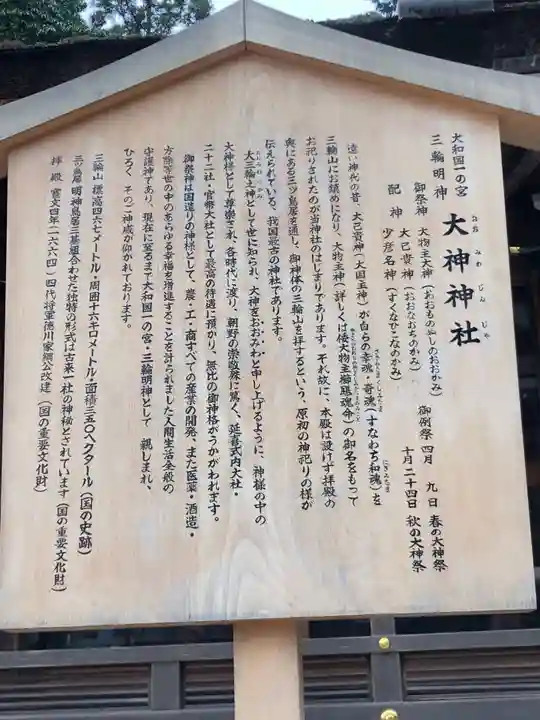 大和国一の宮
三輪明神 大神神社
おお みわ じん じゃ
御祭神 大物主大神(おおものぬしのおおかみ) 御例祭 四月 九日 春の大神祭
大己貴神(おおなむちのかみ) 十月二十四日 秋の大神祭
配神 少彦名神(すくなひこなのかみ)
遠い神代の昔、大己貴神(大国主神)が自らの幸魂・奇魂(すなわち和魂)を
三輪山にお鎮めになり、大物主神(詳しくは倭大物主櫛𤭖魂命)の御名をもって
お祀りされたのが当神社のはじまりであります。それ故に、本殿は設けず拝殿の
奥にある三ツ鳥居を通し、御神体の三輪山を拝するという、原初の神祀りの様が
伝えられている、我国最古の神社であります。
大三輪之神として世に知られ、大神をおおみわと申し上げるように、神様の中の
大神様として尊崇され、各時代に渡り、朝野の崇敬殊に篤く、延喜式内大社・
二十二社・官幣大社として最高の待遇に預かり、無比の御神格がうかがわれます。
御祭神は国造りの神様として、農・工・商すべての産業の開発、また医薬・酒造・
方除等世の中のあらゆる幸福を増進することを計られました人間生活全般の
守護神であり、現在に至るまで大和国一の宮・三輪明神として 親しまれ、
ひろく その御神威が仰がれております。
三輪山 標高四六七メートル・周囲十六キロメートル・面積三五〇ヘクタール(国の史跡)
三ツ鳥居 明神鳥居三基組合わせた独特の形式は古来一社の神秘とされています(国の重要文化財)
拝殿 寛文四年(一六六四)四代将軍徳川家綱公改建(国の重要文化財)